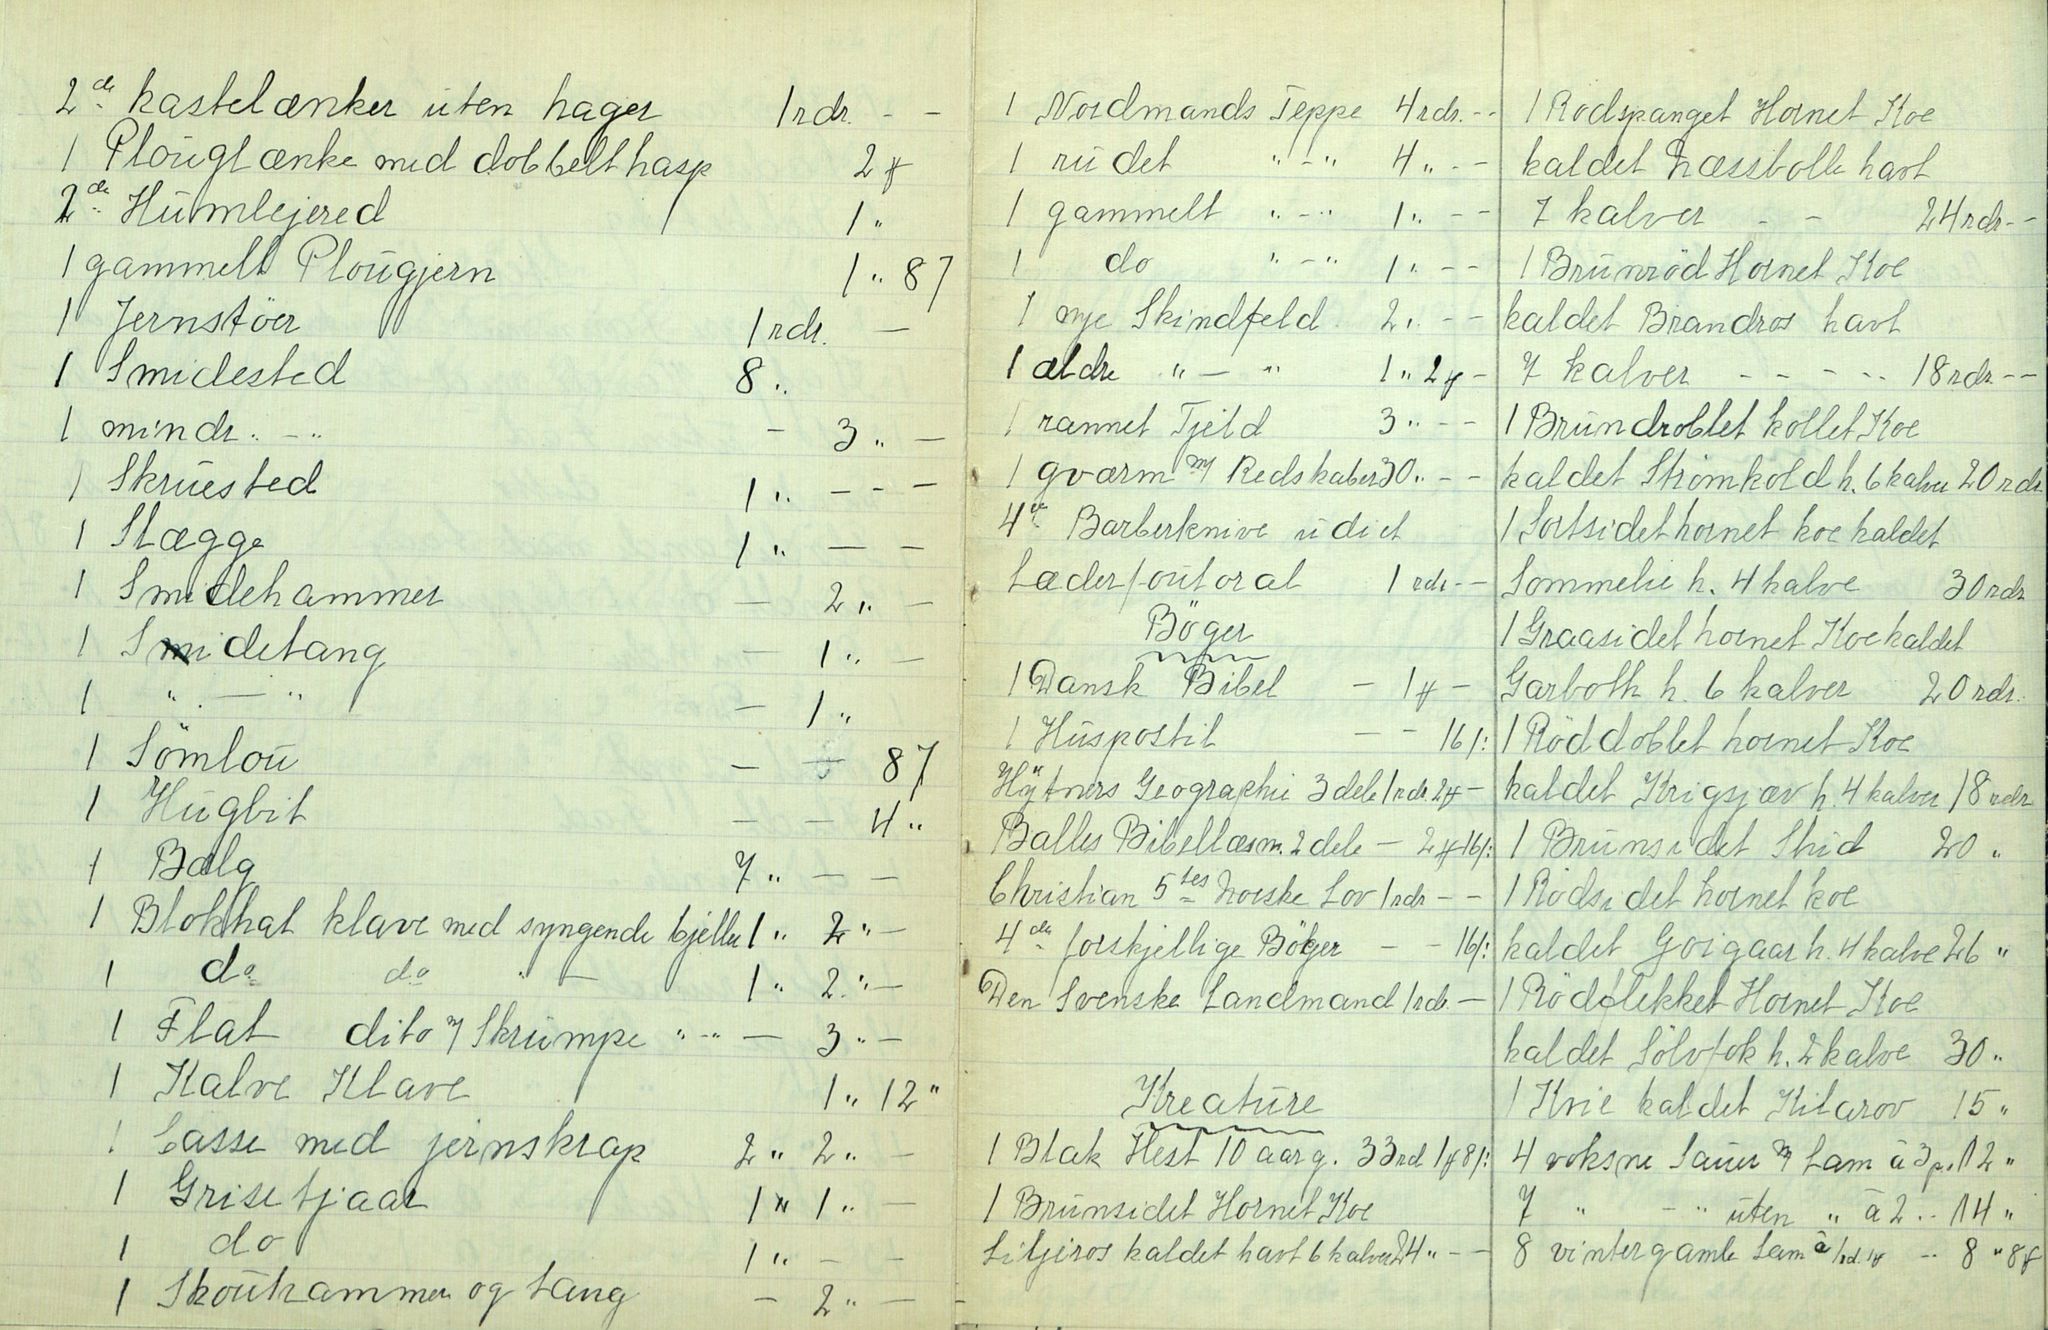 2de kastelænker uten hager 1 rdr. - -
1 Plougtænke med dobbelt hasp 2 #
2de Humlejered 1 "
1 gammelt Plougjern 1 " 8 /
1 Jernstöer 1 rdr. —
1 Smidested 8 "
1 mindr. " - " - 3 " —
1 Skruested 1 " - - -
1 Slægge 1 " — —
1 Smidehammer — 2 " —
1 Smidetang — 1 " —
1 " — " — 1 "
1 Sömlou — — 8 /
1 Hugbit — — 4 "
1 Bælg 7 " — —
1 Blokhat klave med syngende bjelle 1 " 2 " —
1 do do " — 1 " 2 " —
1 Flat dito m/ Skrumpe " - " — 3 " —
1 Kalve Klave 1 " 12 "
1 Casse med jernskrap 2 " 2 " —
1 Grisetjaar 1 " 1 " —
1 do 1 " — —
1 Skouhammer og tang — 2 " — —
1 Nordmands Teppe 4 rdr. - -
1 rudet " - " 4 " - -
1 gammelt " - " 1 " - -
1 do " - " 1 " - -
1 nye Skindfeld 2 " - -
1 ældre " — " 1 " 2 # -
1 rannet Tjeld 3 " - -
1 gværm m/ Redskaber 30 " - -
4de Barberknive udi et
Læder foutoral 1 rdr - -
Böger
1 Dansk Bibel — 1 # —
1 Huspostil — - 16 /:
Hÿtners Geographie 3 dele 1 rdr. 2 # -
Balles Bibellæsn. 2 dele — 2 # 16 /:
Christian 5tes Norske Lov 1 rdr - -
4de forskjellige Böger — - 16 /:
Den Svenske Landmand 1 rdr. —
Kreature
1 Blak Hest 10 aar g. 33 rd 1 # 8 /:
1 Brunsidet Hornet Koe
Liljeros kaldet havt 6 kalver 24 " - -
1 Rødspanget Hornet Koe
kaldet Næssbolle havt
7 kalver - - 24 rdr - -
1 Brunrød Hornet Koe
kaldet Brandros havt
7 kalver - - - - - 18 rdr - -
1 Brundroblet kollet Koe
kaldet Strømkold h. 6 kalve 20 rdr
1 Sortsidet hornet koe kaldet
Sommelie h. 4 kalve 30 rdr
1 Graasidet hornet Koe kaldet
Garboth h. 6 kalver 20 rdr.
1 Röddoblet hornet Koe
kaldet Krigsjæv h. 4 kalver 18 rdr
1 Brunsidet Stud 20 "
1 Rødsidet hornet koe
kaldet Goigaar h. 4 kalve 26 "
1 Rödflekket Hornet Koe
kaldet Sölvfok h. 2 kalve 30 "
1 Kvie kaldet Kilarov 15 "
4 voksne Sauer m/ Lam à 3 12 "
7 " - " uten " à 2 " 14 "
8 vintergamle Lam à 1 rd. 1 # - 8 " 8 #